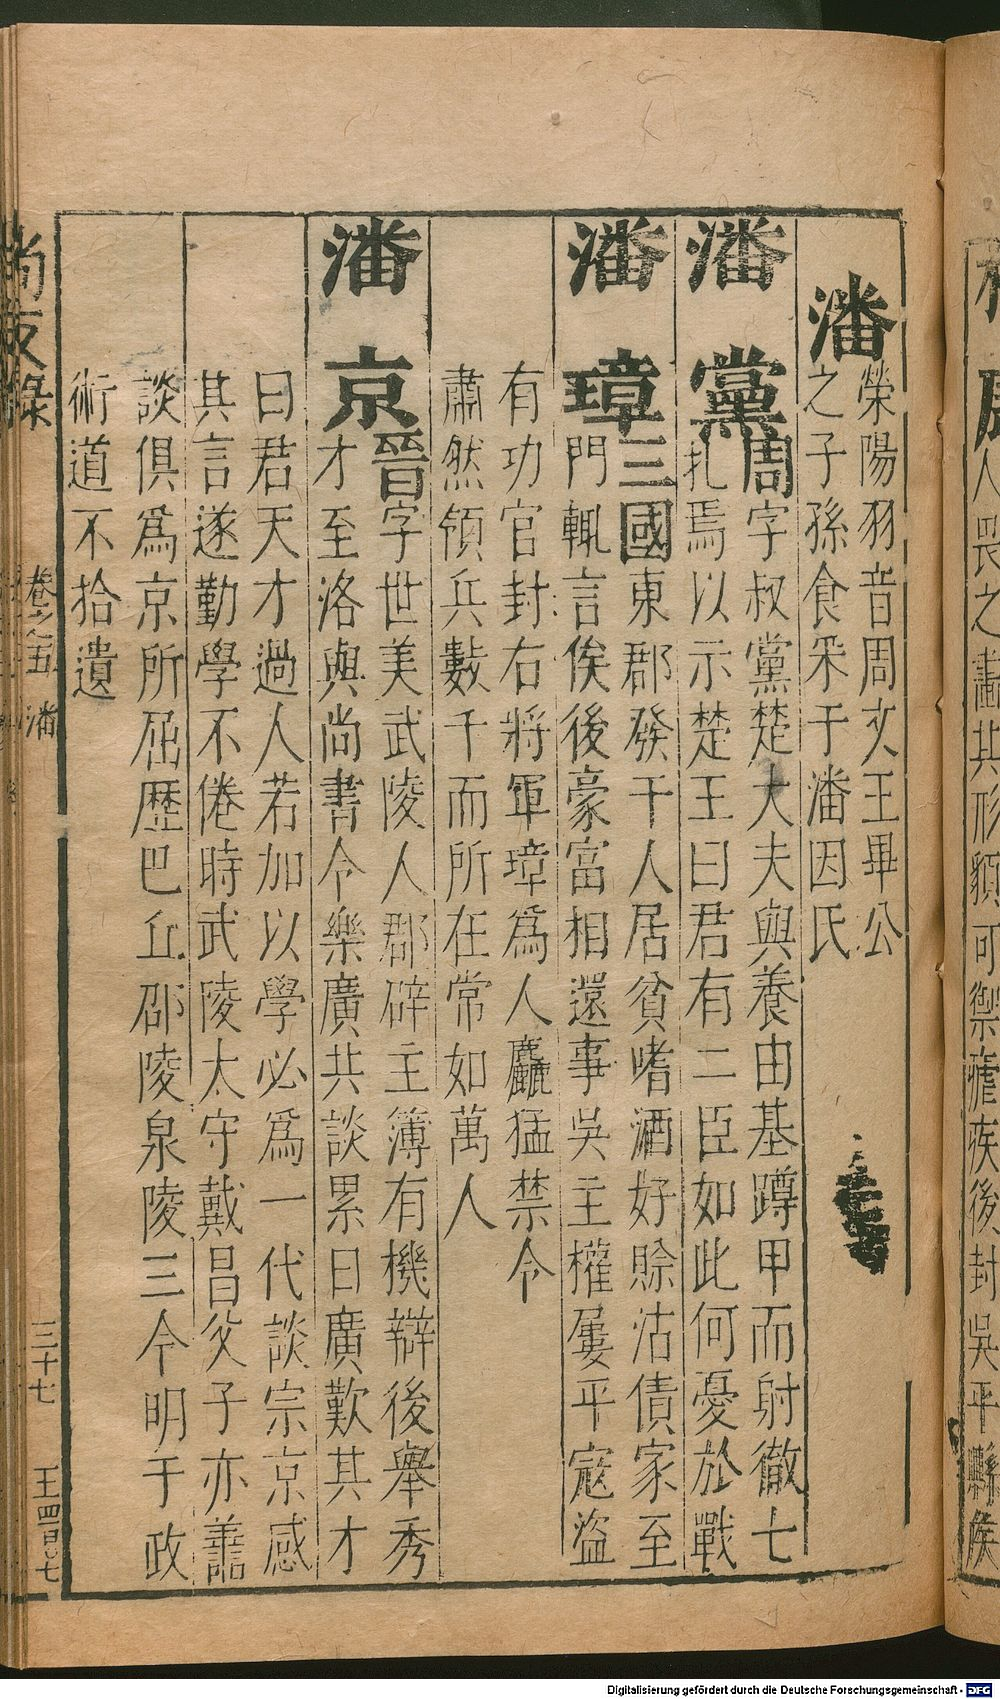 潘
榮陽羽音周文王畢公
之子孫食采于潘因氏
潘黨
周字叔黨楚大夫與養由基蹲甲而射徹七
扎焉以示楚王曰君有二臣如此何憂於戰
潘璋
三國東郡發干人居貧嗜酒好賒沽債家至
門輒言俟後豪富相還事吳主權屢平寇盜
有功官封右將軍璋為人麤猛禁令
肅然領兵數千而所在常如萬人
潘京
晉字世美武陵人郡辟主簿有機辯後舉秀
才至洛與尚書令樂廣共談累日廣歎其才
曰君天才過人若加以學必為一代談宗京感
其言遂勤學不倦時武陵太守戴昌父子亦善
談俱爲京所屈歷巴丘邵陵泉陵三令明于政
術道不拾遺
尚友錄
卷之五 潘
三十七
王四百七
人畏之畫其形貌可禦瘧疾後封吳平縣侯
Digitalisierung gefördert durch die Deutsche Forschungsgemeinschaft - DFG